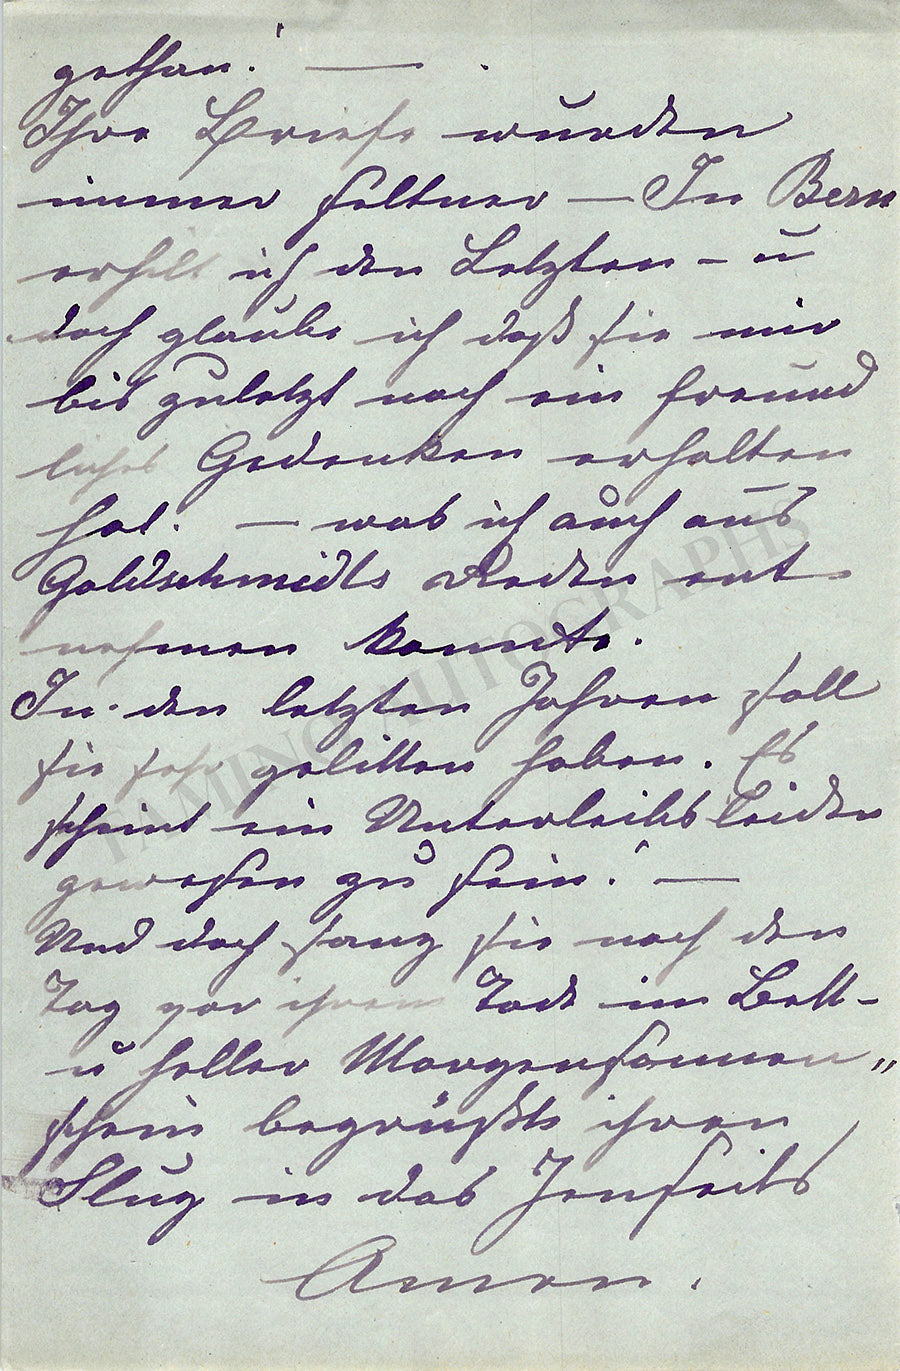 gethan! —
Ihre Briefe wurden
immer seltner — In Bern
erhilt ich den Letzten – u
doch glaube ich daß sie mir
bis zuletzt noch ein freund
liches Gedenken erhalten
hat. — was ich auch aus
Goldschmidts Reden ent-
nehmen konnte.
In den letzten Jahren soll
sie sehr gelitten haben. Es
scheint ein Unterleibsleiden
gewesen zu sein! —
Und doch sang sie noch den
Tag vor ihrem Tode im Bett –
u heller Morgensonnen„
schein begrüßte ihren
Flug in das Jenseits
Amen.
TAMINO AUTOGRAPHS